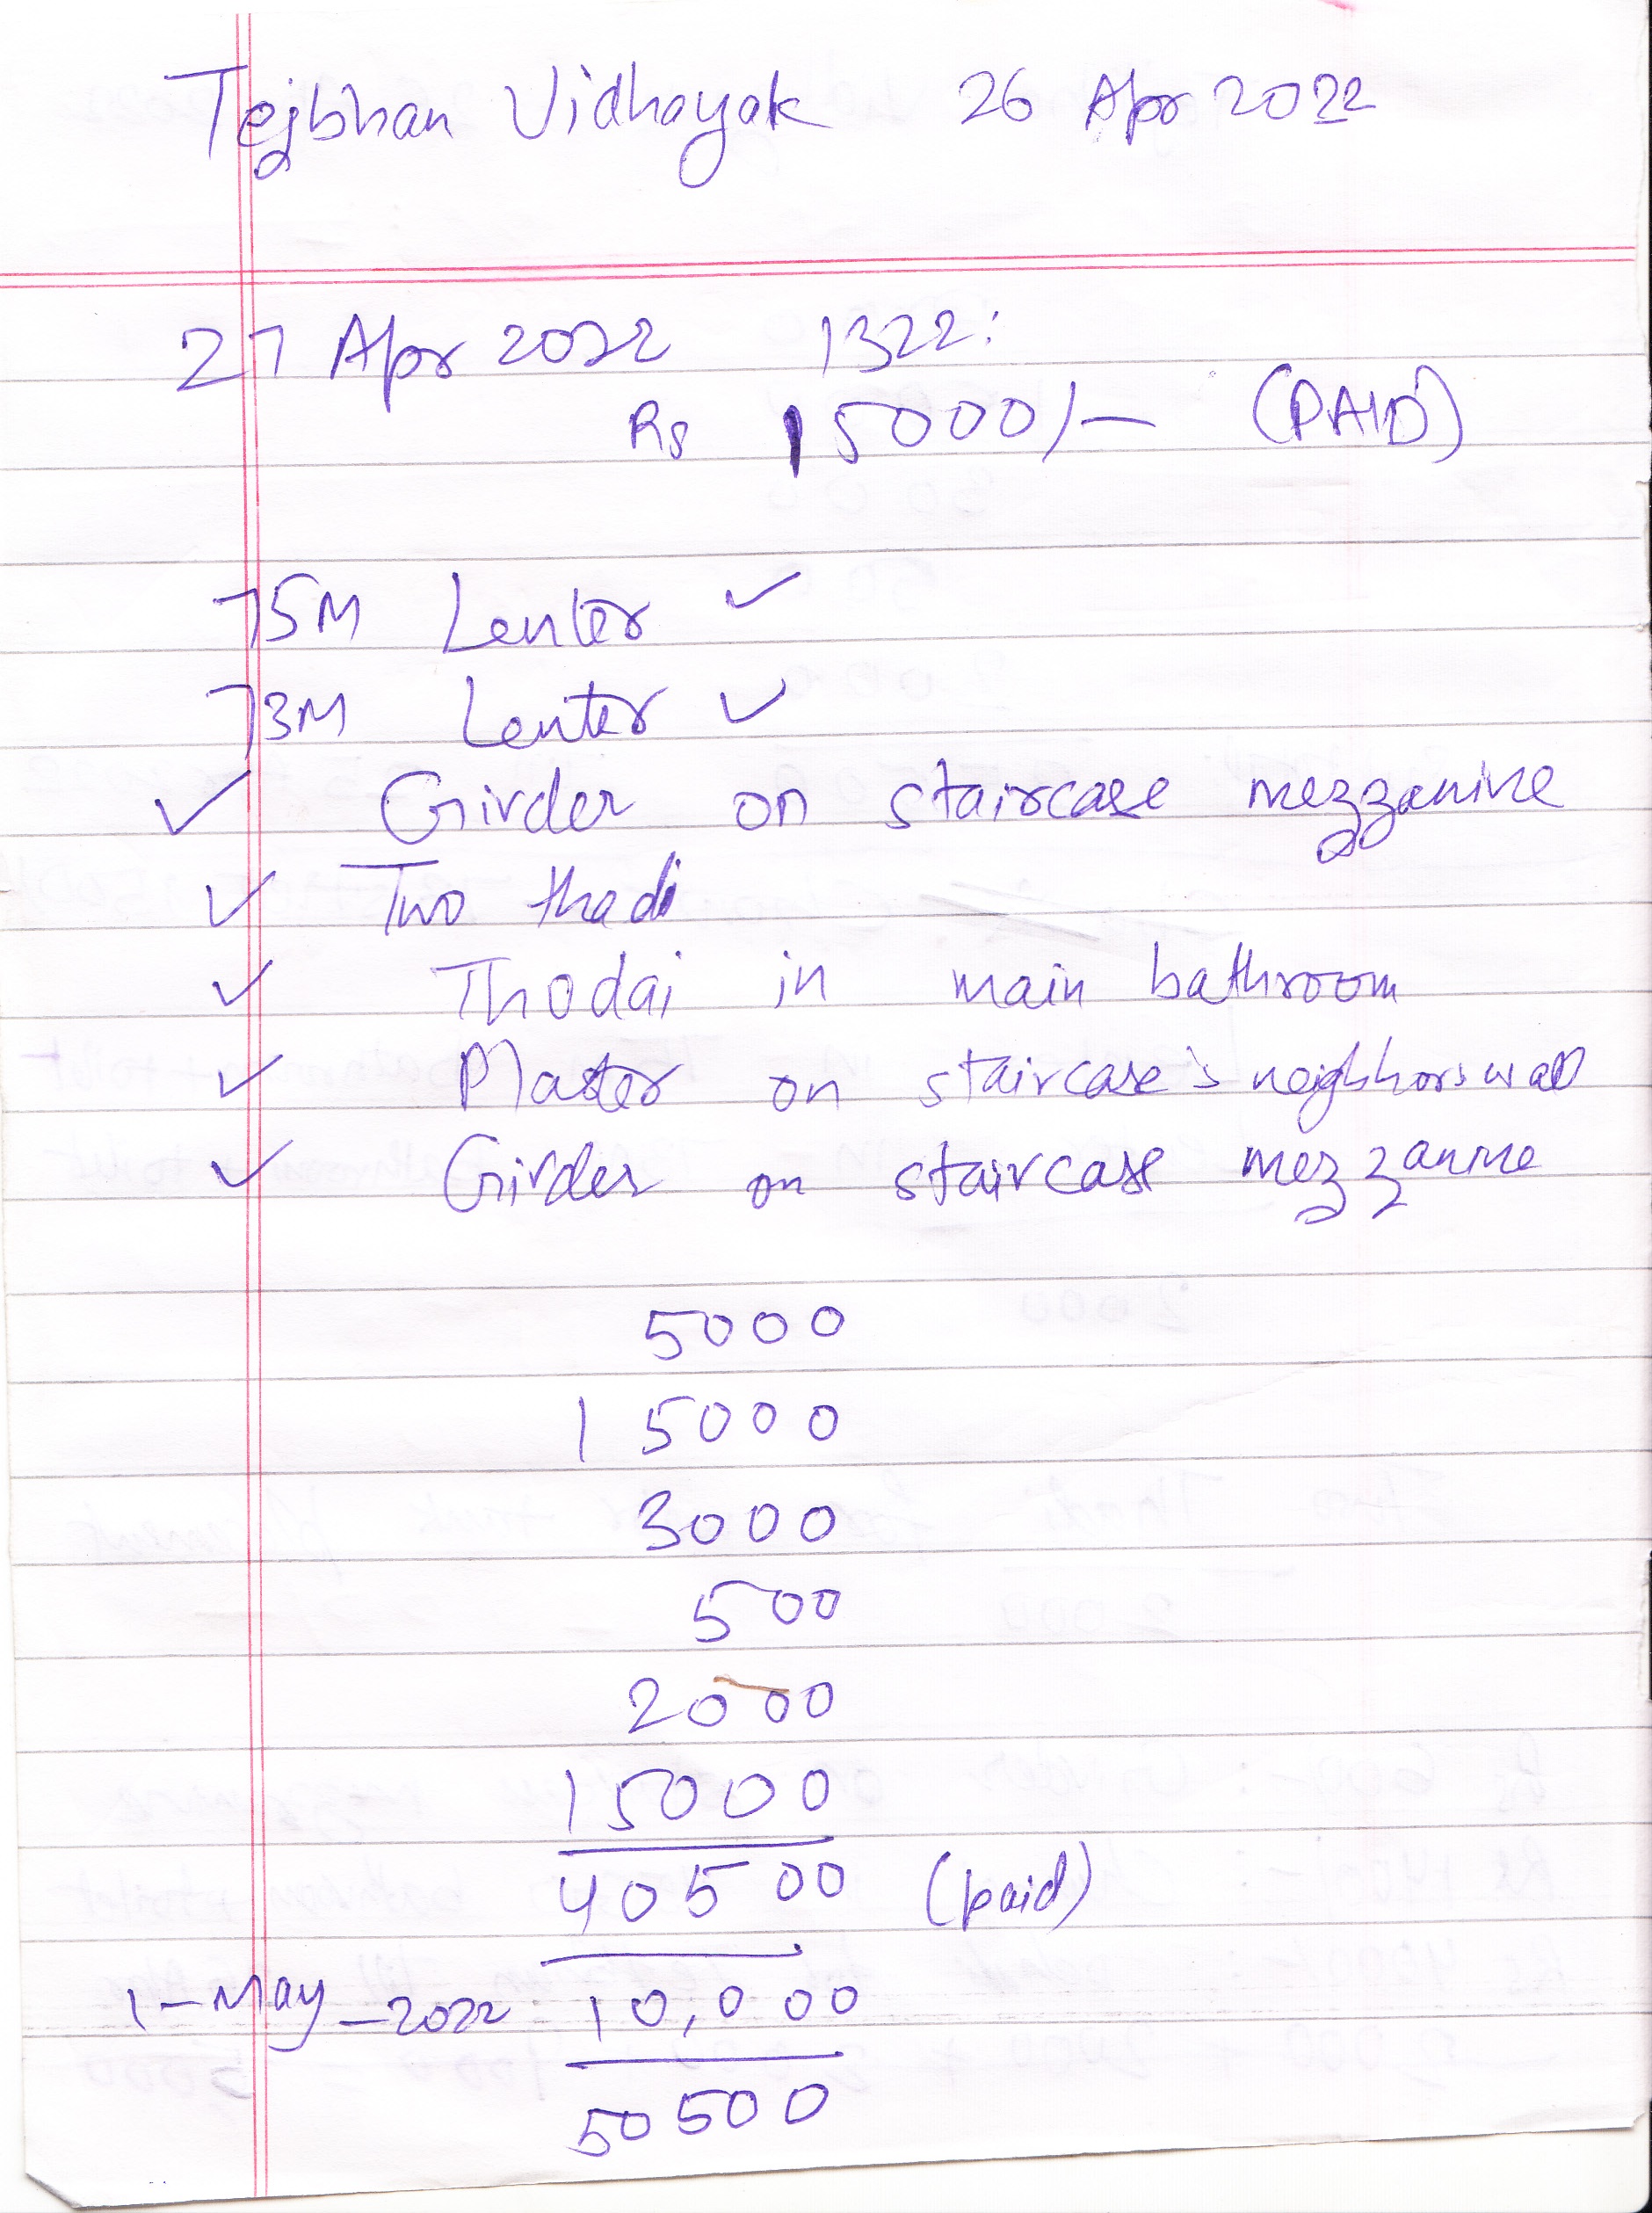 Tejbhan Vidhayak 26 Apr 2022
27 Apr 2022 1322:
Rs 15000/- (PAID)
75M Lenter ✓
73M Lenter ✓
✓ Girder on staircase mezzanine
✓ Two thadi
✓ Thodai in main bathroom
✓ Plaster on staircase's neighbors wall
✓ Girder on staircase mezzanine
5000
15000
3000
500
2000
15000
40500 (paid)
1-May-2022 10,000
50500